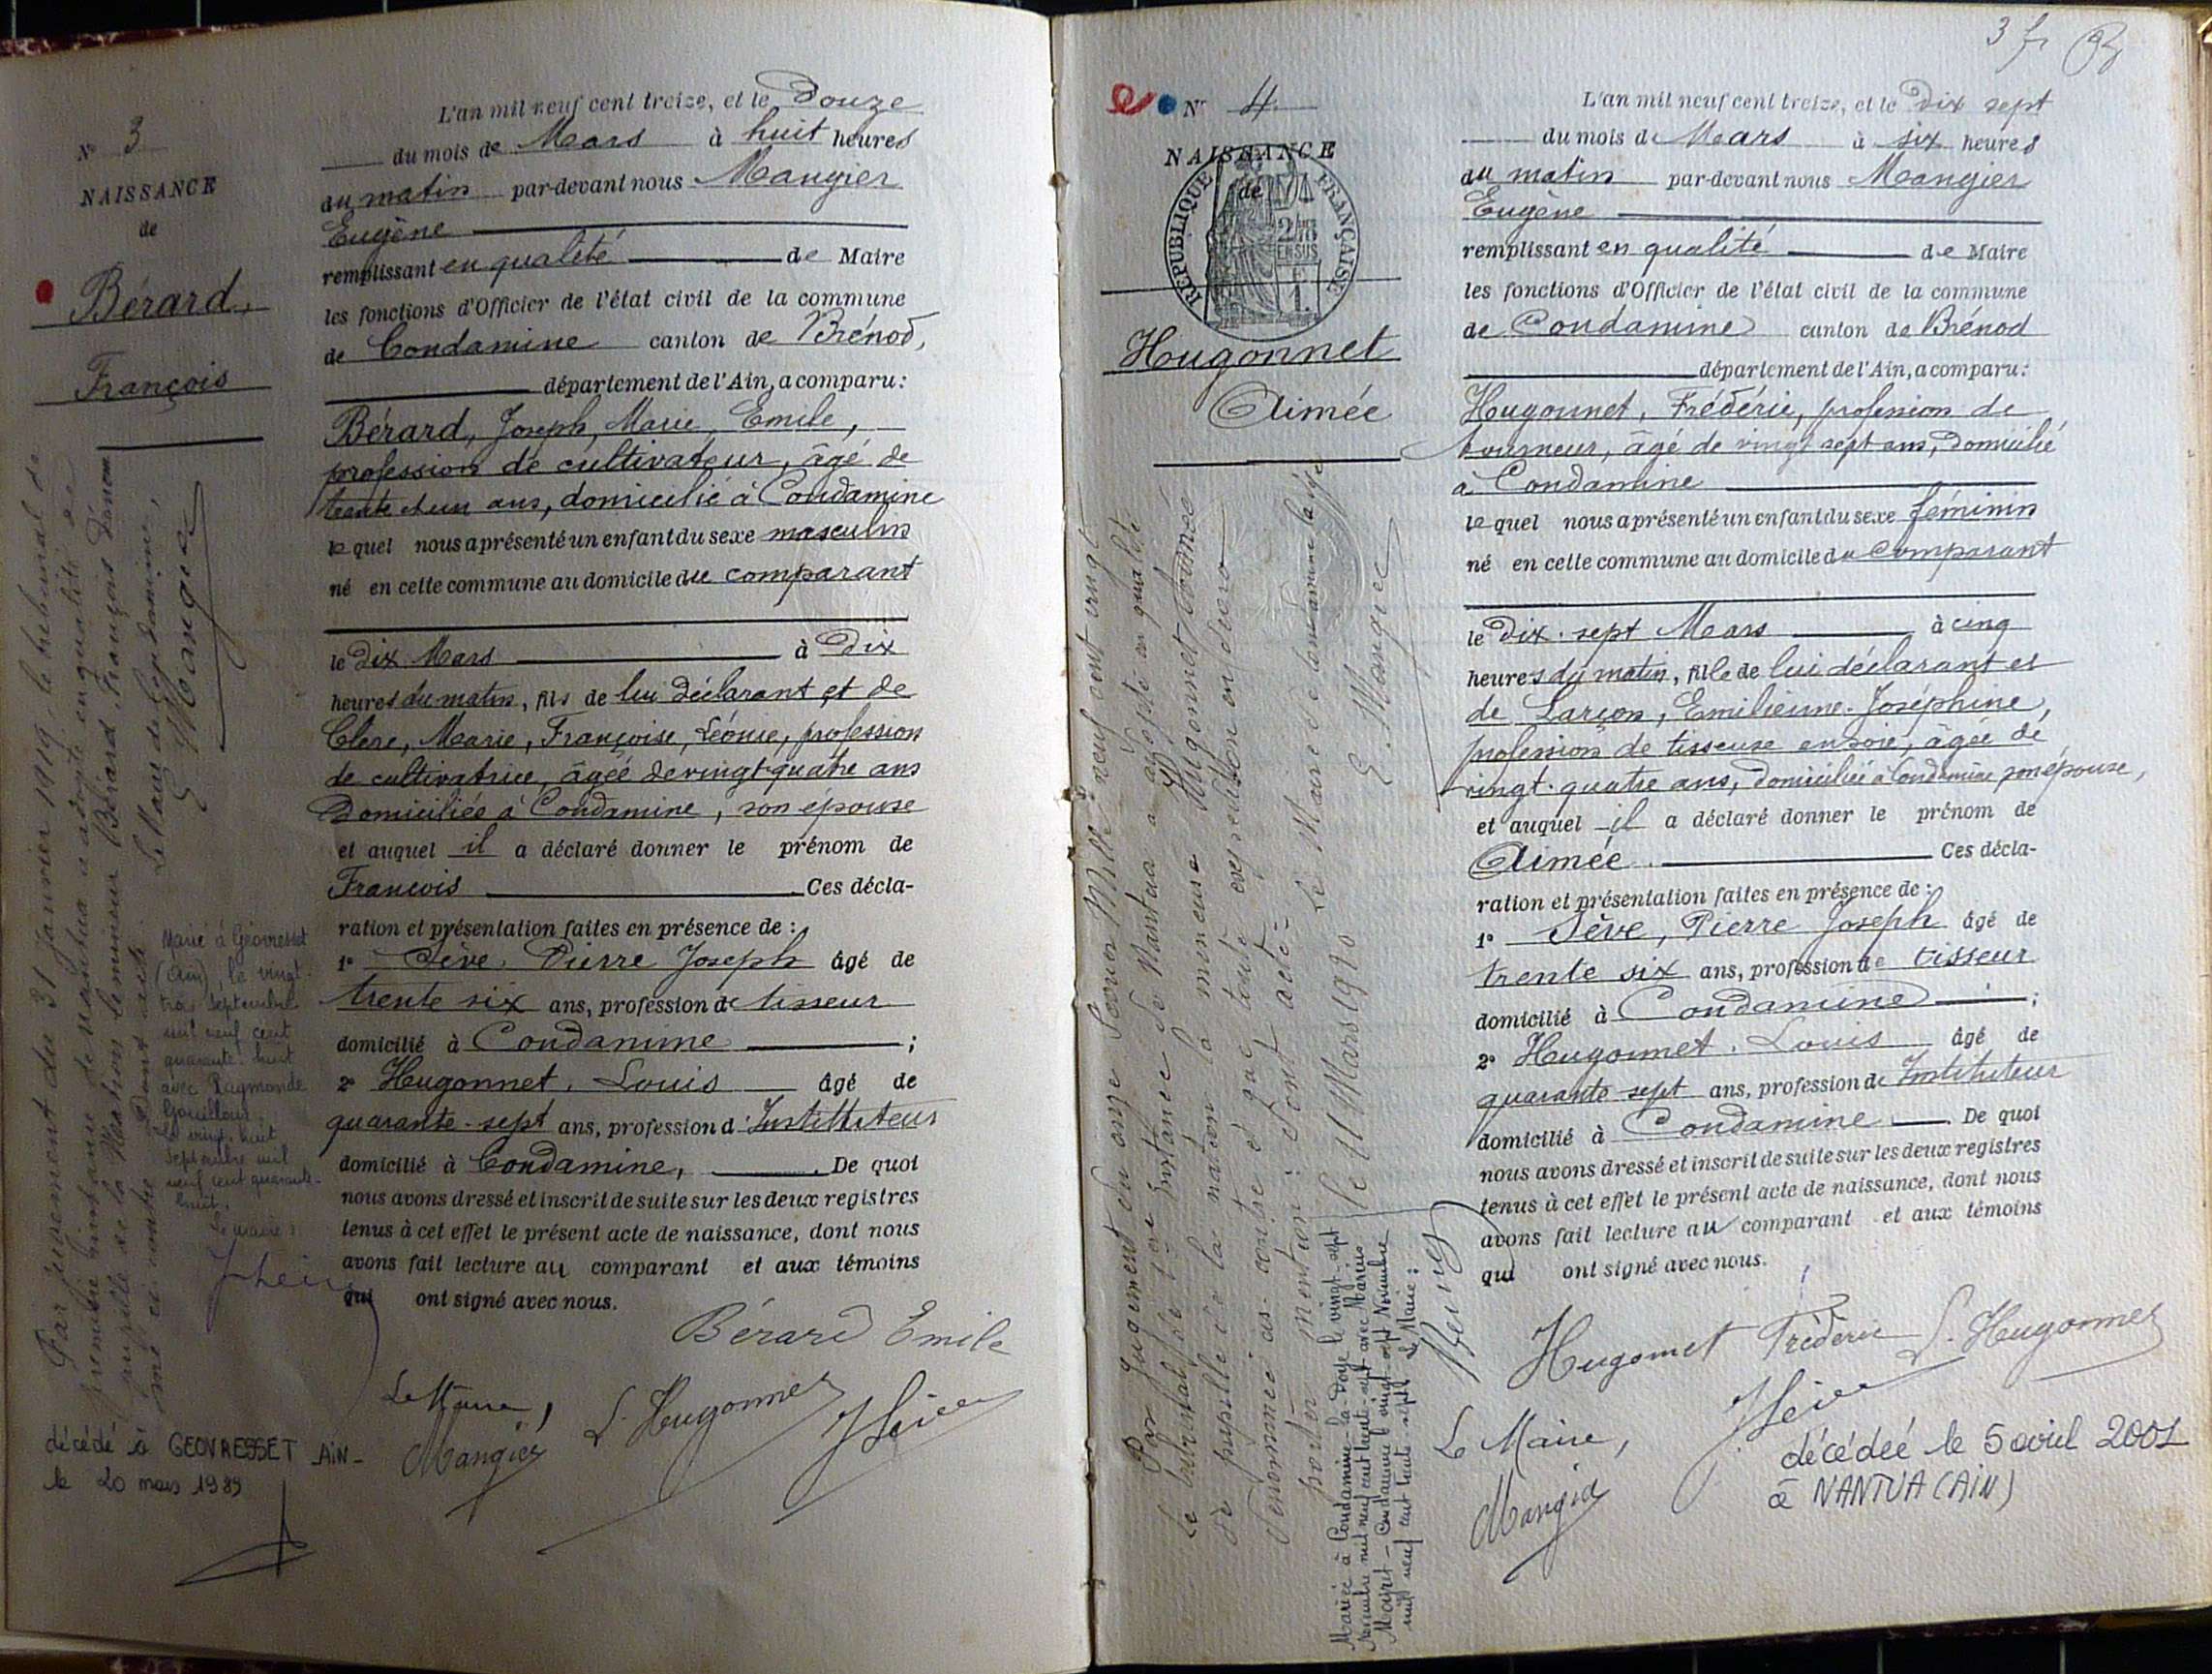 N° 3
NAISSANCE
de
Bérard,
François
L'an mil neuf cent treize, et le Douze
du mois de Mars à huit heures
du matin par-devant nous Mangier
Eugène
remplissant en qualité de Maire
les fonctions d'Officier de l'état civil de la commune
de Condamine canton de Brénod,
département de l'Ain, a comparu :
Bérard, Joseph, Marie, Emile,
profession de cultivateur, âgé de
trente et un ans, domicilié à Condamine
le quel nous a présenté un enfant du sexe masculin
né en cette commune au domicile du comparant
le Dix Mars à Dix
heures du matin, fils de lui déclarant et de
Clère, Marie, Françoise, Léonie, profession
de cultivatrice, âgée de vingt quatre ans
Domiciliée à Condamine, son épouse
et auquel il a déclaré donner le prénom de
François Ces décla-
ration et présentation faites en présence de :
1° Sève, Pierre Joseph âgé de
trente six ans, profession de tisseur
domicilié à Condamine ;
2° Hugonnet, Louis âgé de
quarante-sept ans, profession d'Instituteur
domicilié à Condamine, De quoi
nous avons dressé et inscrit de suite sur les deux registres
tenus à cet effet le présent acte de naissance, dont nous
avons fait lecture au comparant et aux témoins
qui ont signé avec nous.
Bérard Emile
Le Maire,
Mangier
L. Hugonnet
J Sève
Par jugement du 31 Janvier 1919, le tribunal de
première instance de Nantua a adopté en qualité de
pupille de la Nation le mineur Bérard François dénommé
ci contre Dont acte
Le Maire de Condamine,
E Mangier
Marié à Géovresset
(Ain), le vingt-
trois septembre
mil neuf cent
quarante-huit
avec Raymonde
Gouilloux.
Le vingt-huit
septembre mil
neuf cent quarante-
huit.
Le maire :
décédé à GEOVRESSET AIN -
le 20 mars 1989
3 f
N° 4
NAISSANCE
de
RÉPUBLIQUE FRANÇAISE
Hugonnet
Aimée
L'an mil neuf cent treize, et le Dix sept
du mois de Mars à six heures
du matin par-devant nous Mangier
Eugène
remplissant en qualité de Maire
les fonctions d'Officier de l'état civil de la commune
de Condamine canton de Brénod
département de l'Ain, a comparu :
Hugonnet, Frédéric, profession de
tourneur, âgé de vingt sept ans, domicilié
à Condamine
le quel nous a présenté un enfant du sexe féminin
né en cette commune au domicile du comparant
le Dix-sept Mars à cinq
heures du matin, fille de lui déclarant et
de Larçon, Emilienne-Joséphine,
profession de tisseuse en soie, âgée de
vingt-quatre ans, domiciliée à Condamine son épouse,
et auquel il a déclaré donner le prénom de
Aimée Ces décla-
ration et présentation faites en présence de :
1° Sève, Pierre Joseph âgé de
trente six ans, profession de tisseur
domicilié à Condamine ;
2° Hugonnet, Louis âgé de
quarante-sept ans, profession de Instituteur
domicilié à Condamine De quoi
nous avons dressé et inscrit de suite sur les deux registres
tenus à cet effet le présent acte de naissance, dont nous
avons fait lecture au comparant et aux témoins
qui ont signé avec nous.
Hugonnet Frédéric L. Hugonnet
J Sève
Le Maire,
Mangier
décédée le 5 avril 2001
à NANTUA (AIN)
Par Jugement du onze Février Mille neuf cent vingt
le tribunal de 1ère Instance de Nantua a adopté en qualité
de pupille de la nation la mineure Hugonnet Aimée
dénommée ci-contre et que toute expédition en devra
porter mention : Dont acte -
le 11 Mars 1920 Le Maire de Condamine la Doye
E. Mangier
Mariée à Condamine-la-Doye le vingt-sept
Novembre mil neuf cent trente-sept avec Marius
Moiret - Condamine le vingt-sept Novembre
mil neuf cent trente-sept Le Maire :